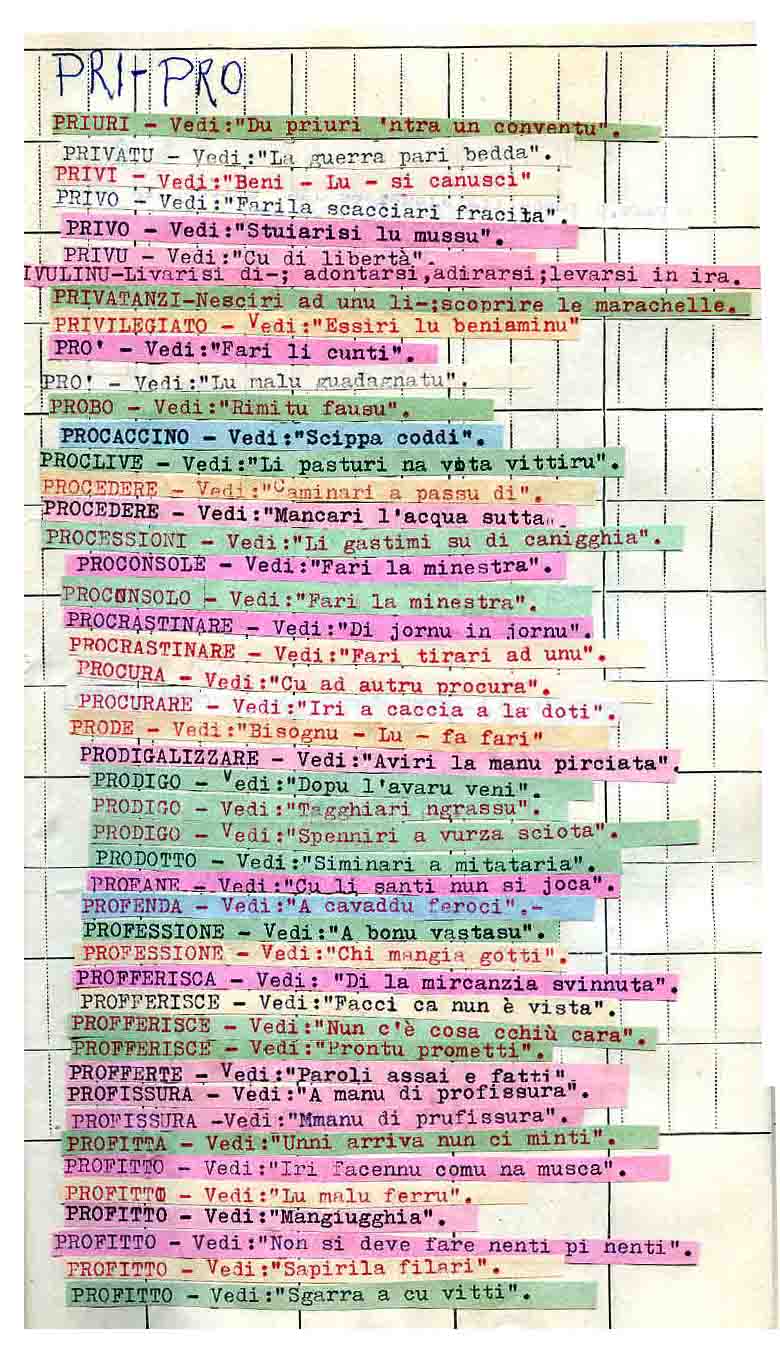 PRI+PRO
PRIURI - Vedi:"Du priuri 'ntra un conventu".
PRIVATU - Vedi:"La guerra pari bedda".
PRIVI - Vedi:"Beni - Lu - si canusci"
PRIVO - Vedi:"Farila scacciari fracita".
PRIVO - Vedi:"Stuiarisi lu mussu".
PRIVU - Vedi:"Cu di libertà".
IVULINU-Livarisi di-; adontarsi,adirarsi;levarsi in ira.
PRIVATANZI-Nesciri ad unu li-;scoprire le marachelle.
PRIVILEGIATO - Vedi:"Essiri lu beniaminu"
PRO' - Vedi:"Fari li cunti".
PRO' - Vedi:"Lu malu guadagnatu".
PROBO - Vedi:"Rimitu fausu".
PROCACCINO - Vedi:"Scippa coddi".
PROCLIVE - Vedi:"Li pasturi na vota vittiru".
PROCEDERE - Vedi:"Caminari a passu di".
PROCEDERE - Vedi:"Mancari l'acqua sutta".
PROCESSIONI - Vedi:"Li gastimi su di canigghia".
PROCONSOLE - Vedi:"Fari la minestra".
PROCONSOLO - Vedi:"Fari la minestra".
PROCRASTINARE - Vedi:"Di jornu in jornu".
PROCRASTINARE - Vedi:"Fari tirari ad unu".
PROCURA - Vedi:"Cu ad autru procura".
PROCURARE - Vedi:"Iri a caccia a la doti".
PRODE - Vedi:"Bisognu - Lu - fa fari"
PRODIGALIZZARE - Vedi:"Aviri la manu pirciata".
PRODIGO - Vedi:"Dopu l'avaru veni".
PRODIGO - Vedi:"Tagghiari ngrassu".
PRODIGO - Vedi:"Spenniri a vurza sciota".
PRODOTTO - Vedi:"Siminari a mitataria".
PROFANE - Vedi:"Cu li santi nun si joca".
PROFENDA - Vedi:"A cavaddu feroci".-
PROFESSIONE - Vedi:"A bonu vastasu".
PROFESSIONE - Vedi:"Chi mangia gotti".
PROFFERISCA - Vedi: "Di la mircanzia svinnuta".
PROFFERISCE - Vedi:"Facci ca nun è vista".
PROFFERISCE - Vedi:"Nun c'è cosa cchiù cara".
PROFFERISCE - Vedi:"Prontu prometti".
PROFFERTE - Vedi:"Paroli assai e fatti".
PROFISSURA - Vedi:"A manu di profissura".
PROFISSURA -Vedi:"Mmanu di prufissura".
PROFITTA - Vedi:"Unni arriva nun ci minti".
PROFITTO - Vedi:"Iri facennu comu na musca".
PROFITTO - Vedi:"Lu malu ferru".
PROFITTO - Vedi:"Mangiugghia".
PROFITTO - Vedi:"Non si deve fare nenti pi nenti".
PROFITTO - Vedi:"Sapirila filari".
PROFITTO - Vedi:"Sgarra a cu vitti".